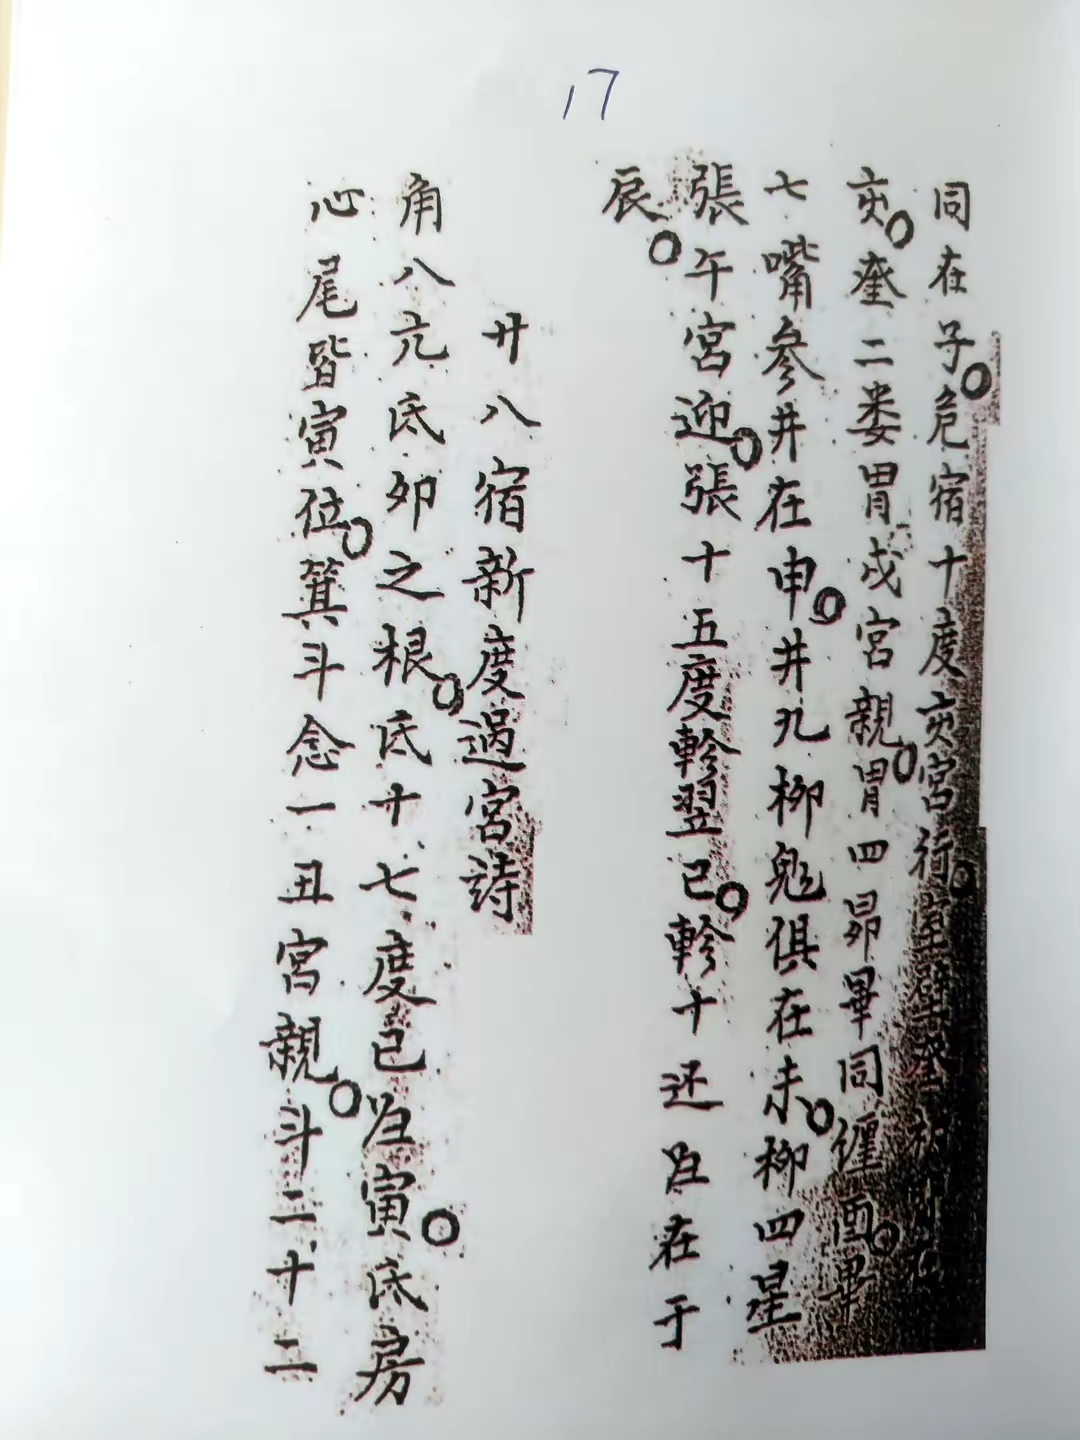 17
同在子。危宿十度亥宮行。室壁奎
亥。奎二娄胃戌宮親。胃四昴畢同纏酉。畢
七嘴參井在申。井九柳鬼俱在未。柳四星
張午宮迎。張十五度軫翌已。軫十还归在于
辰。
廿八宿新度過宮詩
角八亢氐卯之根。氐十七度已归寅。氐房
心尾皆寅位。箕斗念一丑宮親。斗二十二